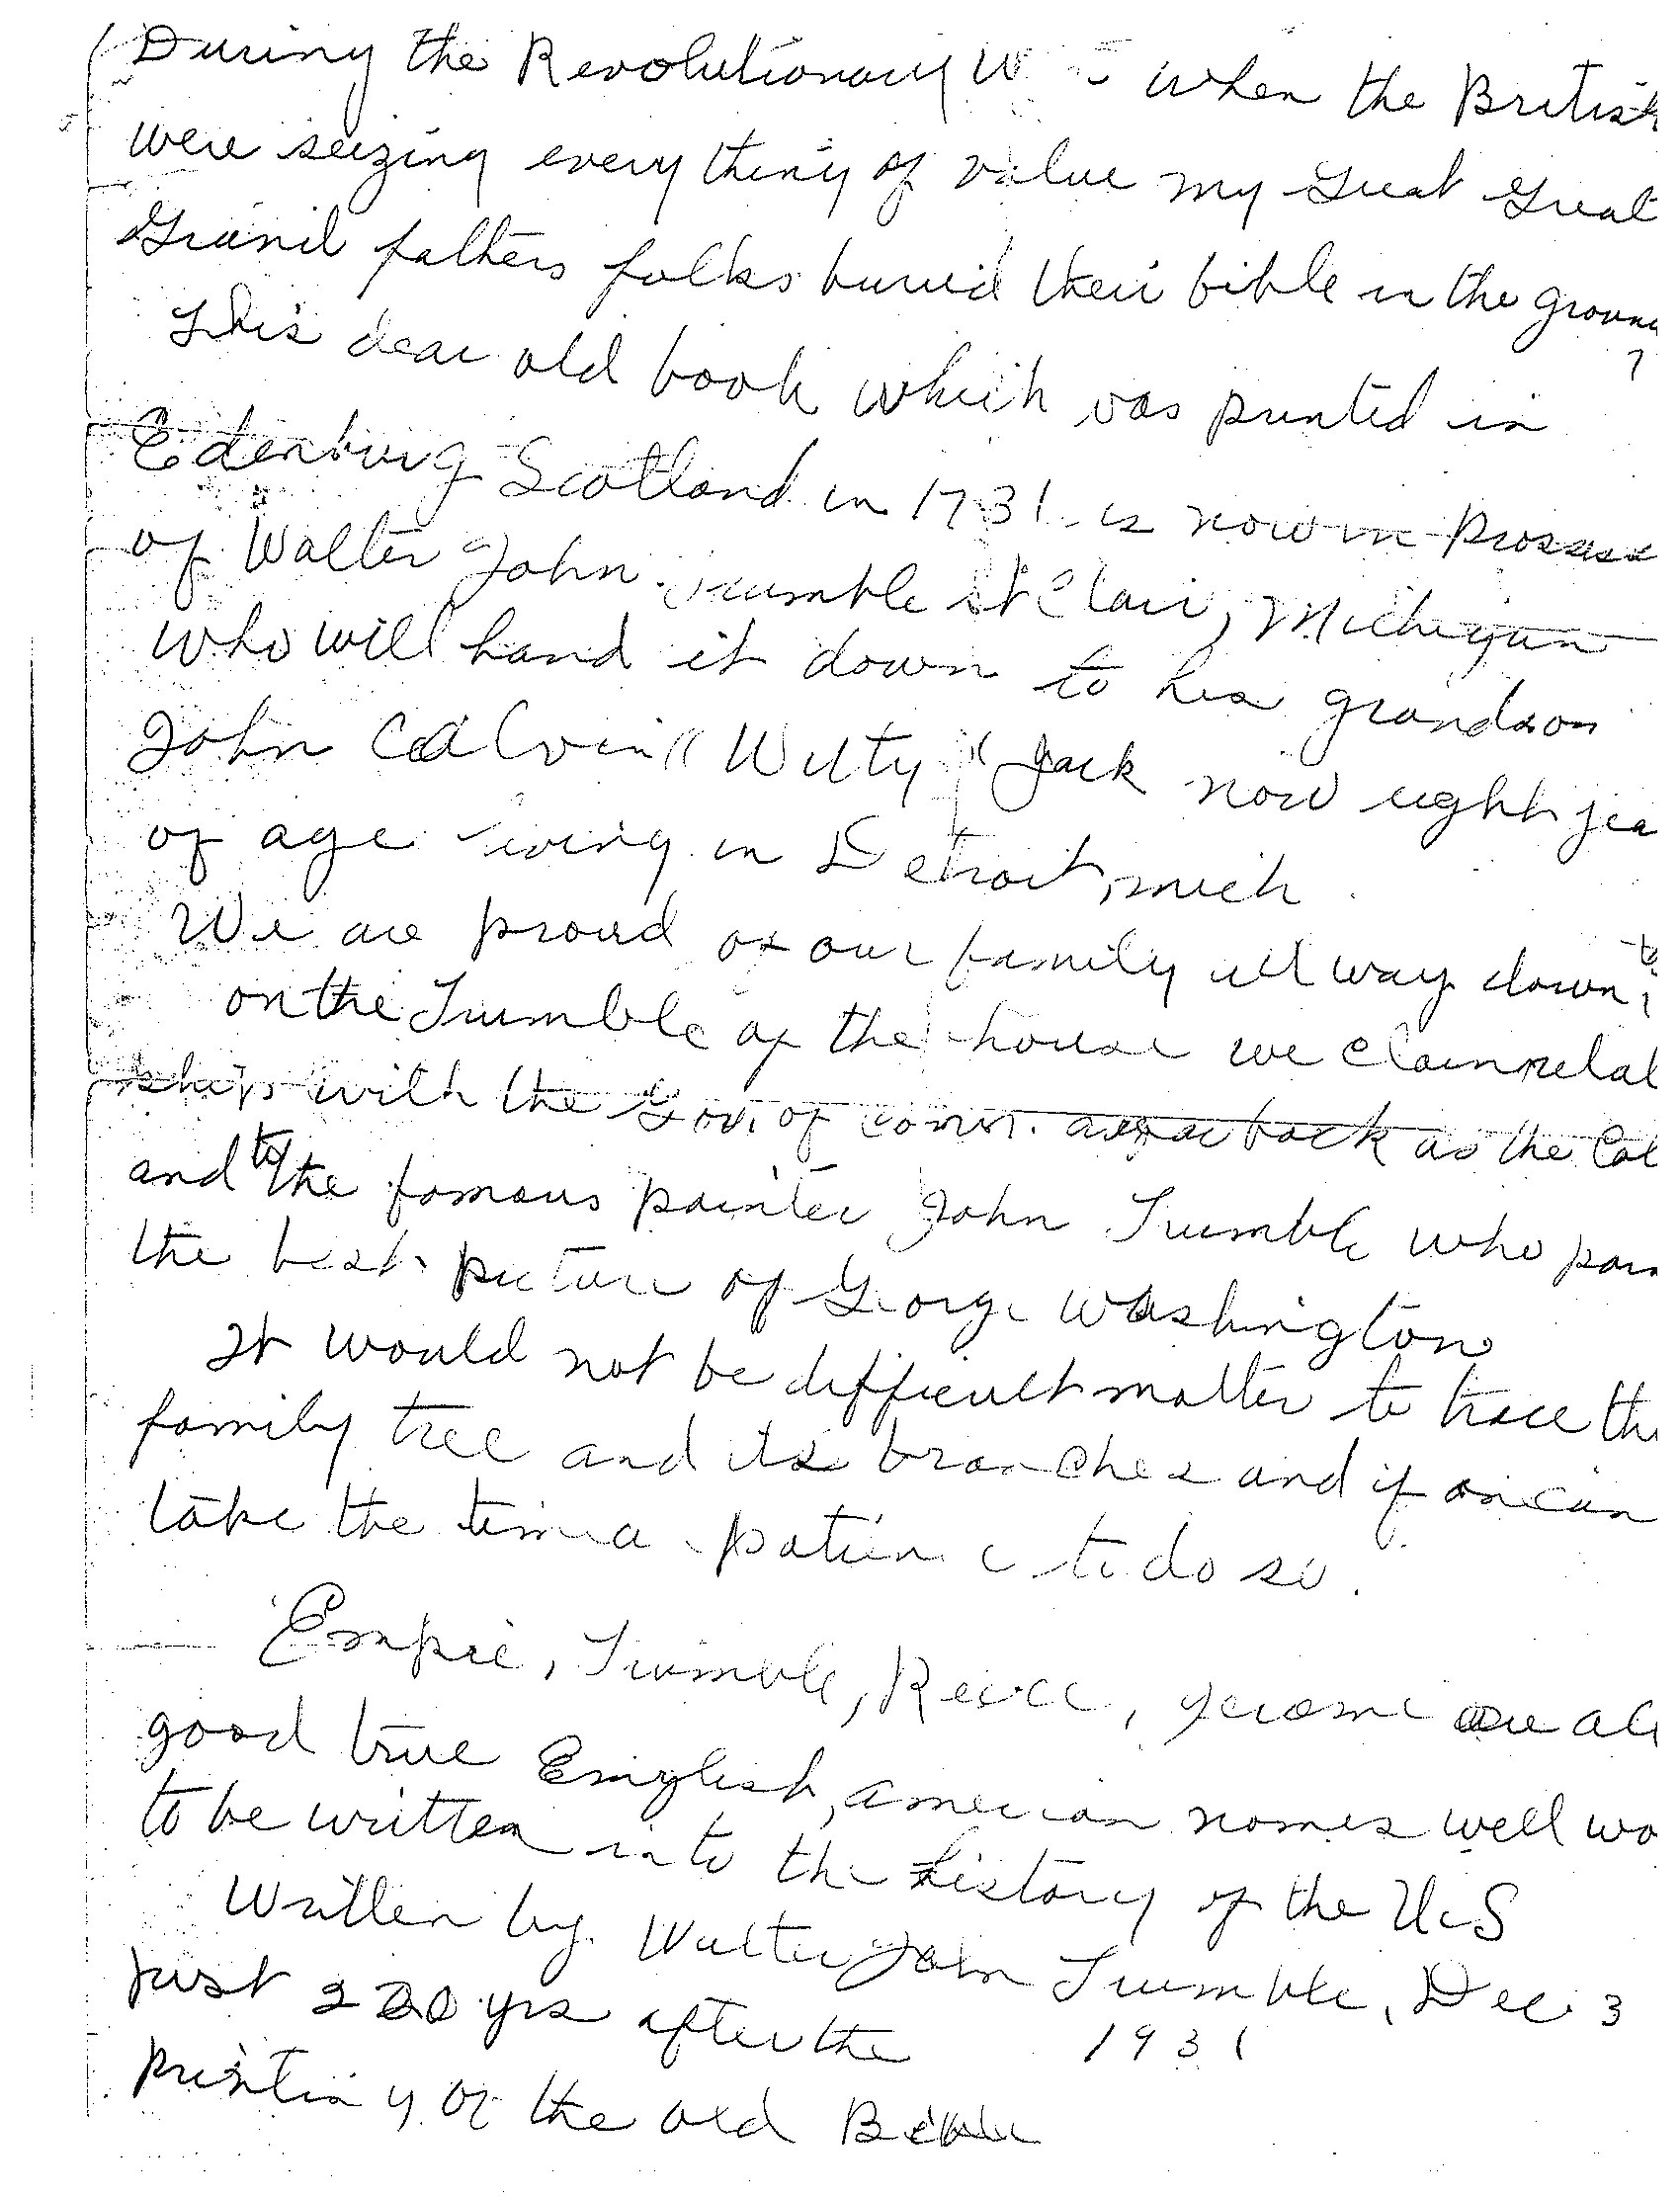 During the Revolutionary W when the British
were seizing every thing of value my Great Great
Grand fathers folks buried their bible in the ground
This dear old book which was printed in
Edenburg Scotland in 1731 is now in
of Walter John Trumble St Clair, Michigan
who will hand it down to his grandson
John Calvin "Witty" Jack now eight yea
of age living in Detroit, mich
We are proud of our family all way down to
on the Trumble of the house we claim relat
ships with the Gov. of Conn. as far back as the Col
and to the famous painter John Trumble who pain
the best picture of George Washington
It would not be difficult matter to trace the
family tree and its branches and if on can
take the time a patienc to do so.
Empie, Trumble, Reece, Jerome are all
good true English, american names well wo
to be written into the history of the U.S
Written by Walter John Trumble, Dec 3
just 200 yrs after the 1931
printing of the old Bible